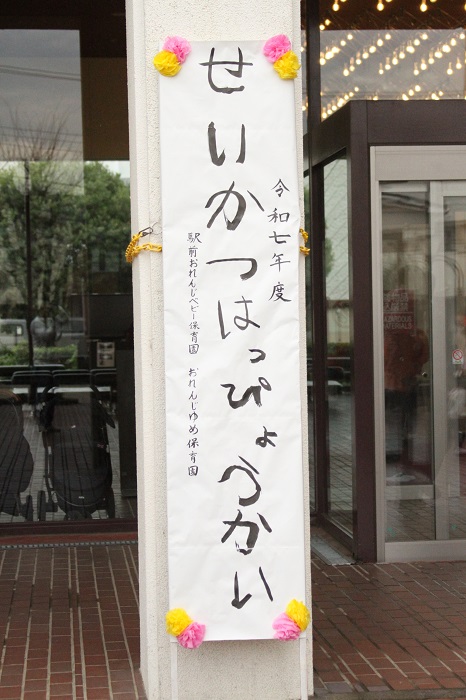 令和七年度
せいかつはっぴょうかい
駅前おれんじベビー保育園 おれんじゆめ保育園